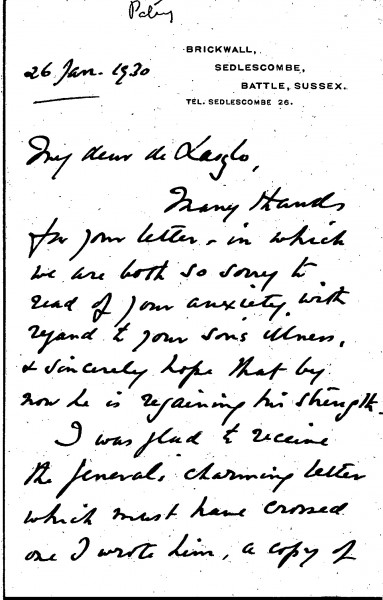 BRICKWALL,
SEDLESCOMBE,
BATTLE, SUSSEX.
TEL. SEDLESCOMBE 26.
26 Jan. 1930
My dear de Laszlo,
Many thanks
for your letter - in which
we are both so sorry to
read of your anxiety with
regard to your son's illness,
& sincerely hope that by
now he is regaining his strength.
I was glad to receive
the General's charming letter
which must have crossed
one I wrote him, a copy of